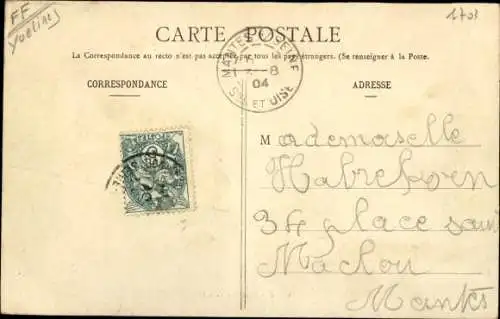 FF
Yvelines
1703
CARTE POSTALE
La Correspondance au recto n'est pas acceptée par tous les pays étrangers. (Se renseigner à la Poste.
CORRESPONDANCE
ADRESSE
8
04
ET OISE
Mademoiselle
34 place
Maclou
Mantes